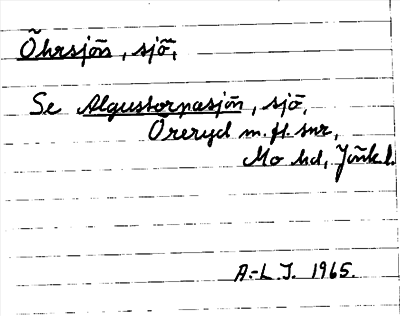 Öhrsjön, sjö,
Se Algustorpasjön, sjö,
Öreryd m. fl. snr,
Mo hd, Jönk l.
A.-L. J. 1965.